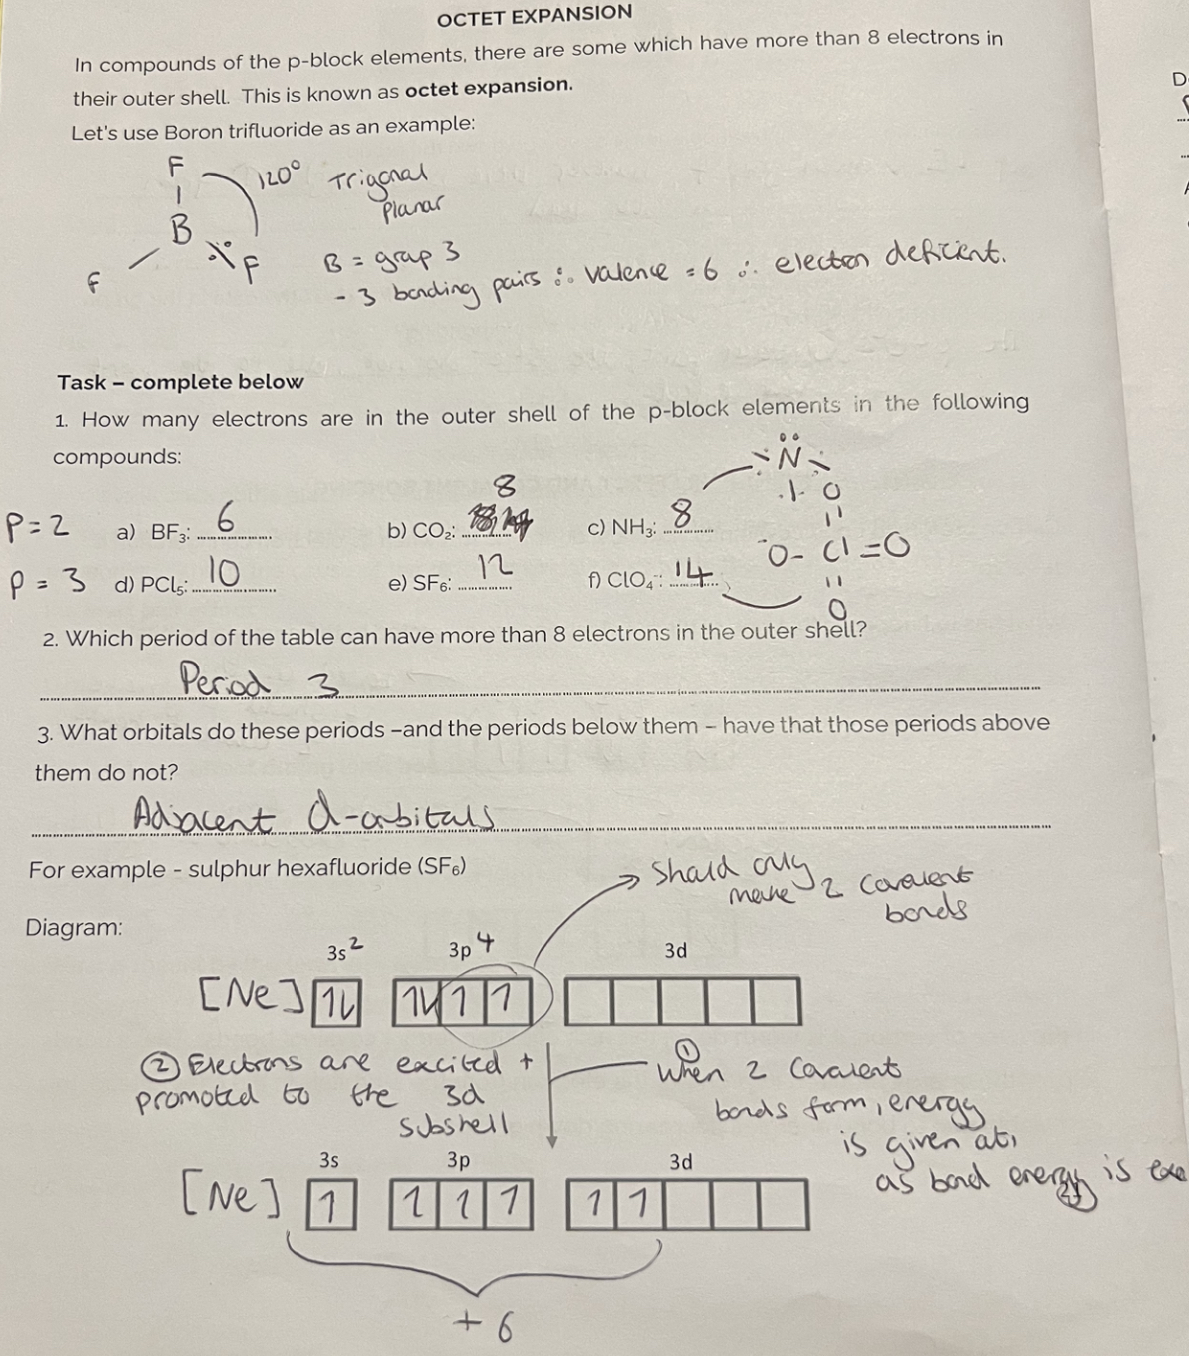 OCTET EXPANSION
In compounds of the p-block elements, there are some which have more than 8 electrons in
their outer shell. This is known as octet expansion.
Let's use Boron trifluoride as an example:
F
120° Trigonal
Planar
B
F
F
B = group 3
- 3 bonding pairs ∴ valence = 6 ∴ electron deficient.
Task – complete below
1. How many electrons are in the outer shell of the p-block elements in the following
compounds:
N
P = 2 a) BF₃: 6 b) CO₂: 8 c) NH₃: 8
O
⁻O- Cl =O
O
P = 3 d) PCl₅: 10 e) SF₆: 12 f) ClO₄⁻: 14
2. Which period of the table can have more than 8 electrons in the outer shell?
Period 3
3. What orbitals do these periods –and the periods below them – have that those periods above
them do not?
Adjacent d-orbitals
For example - sulphur hexafluoride (SF₆)
Should only
make 2 covalent
bonds
Diagram:
3s² 3p⁴ 3d
[Ne] 1⇂ 1⇂ 1 1
② Electrons are excited +
promoted to the 3d
subshell
① When 2 covalent
bonds form, energy
is given out,
as bond energy is
3s 3p 3d
[Ne] 1 1 1 1 1 1
+ 6